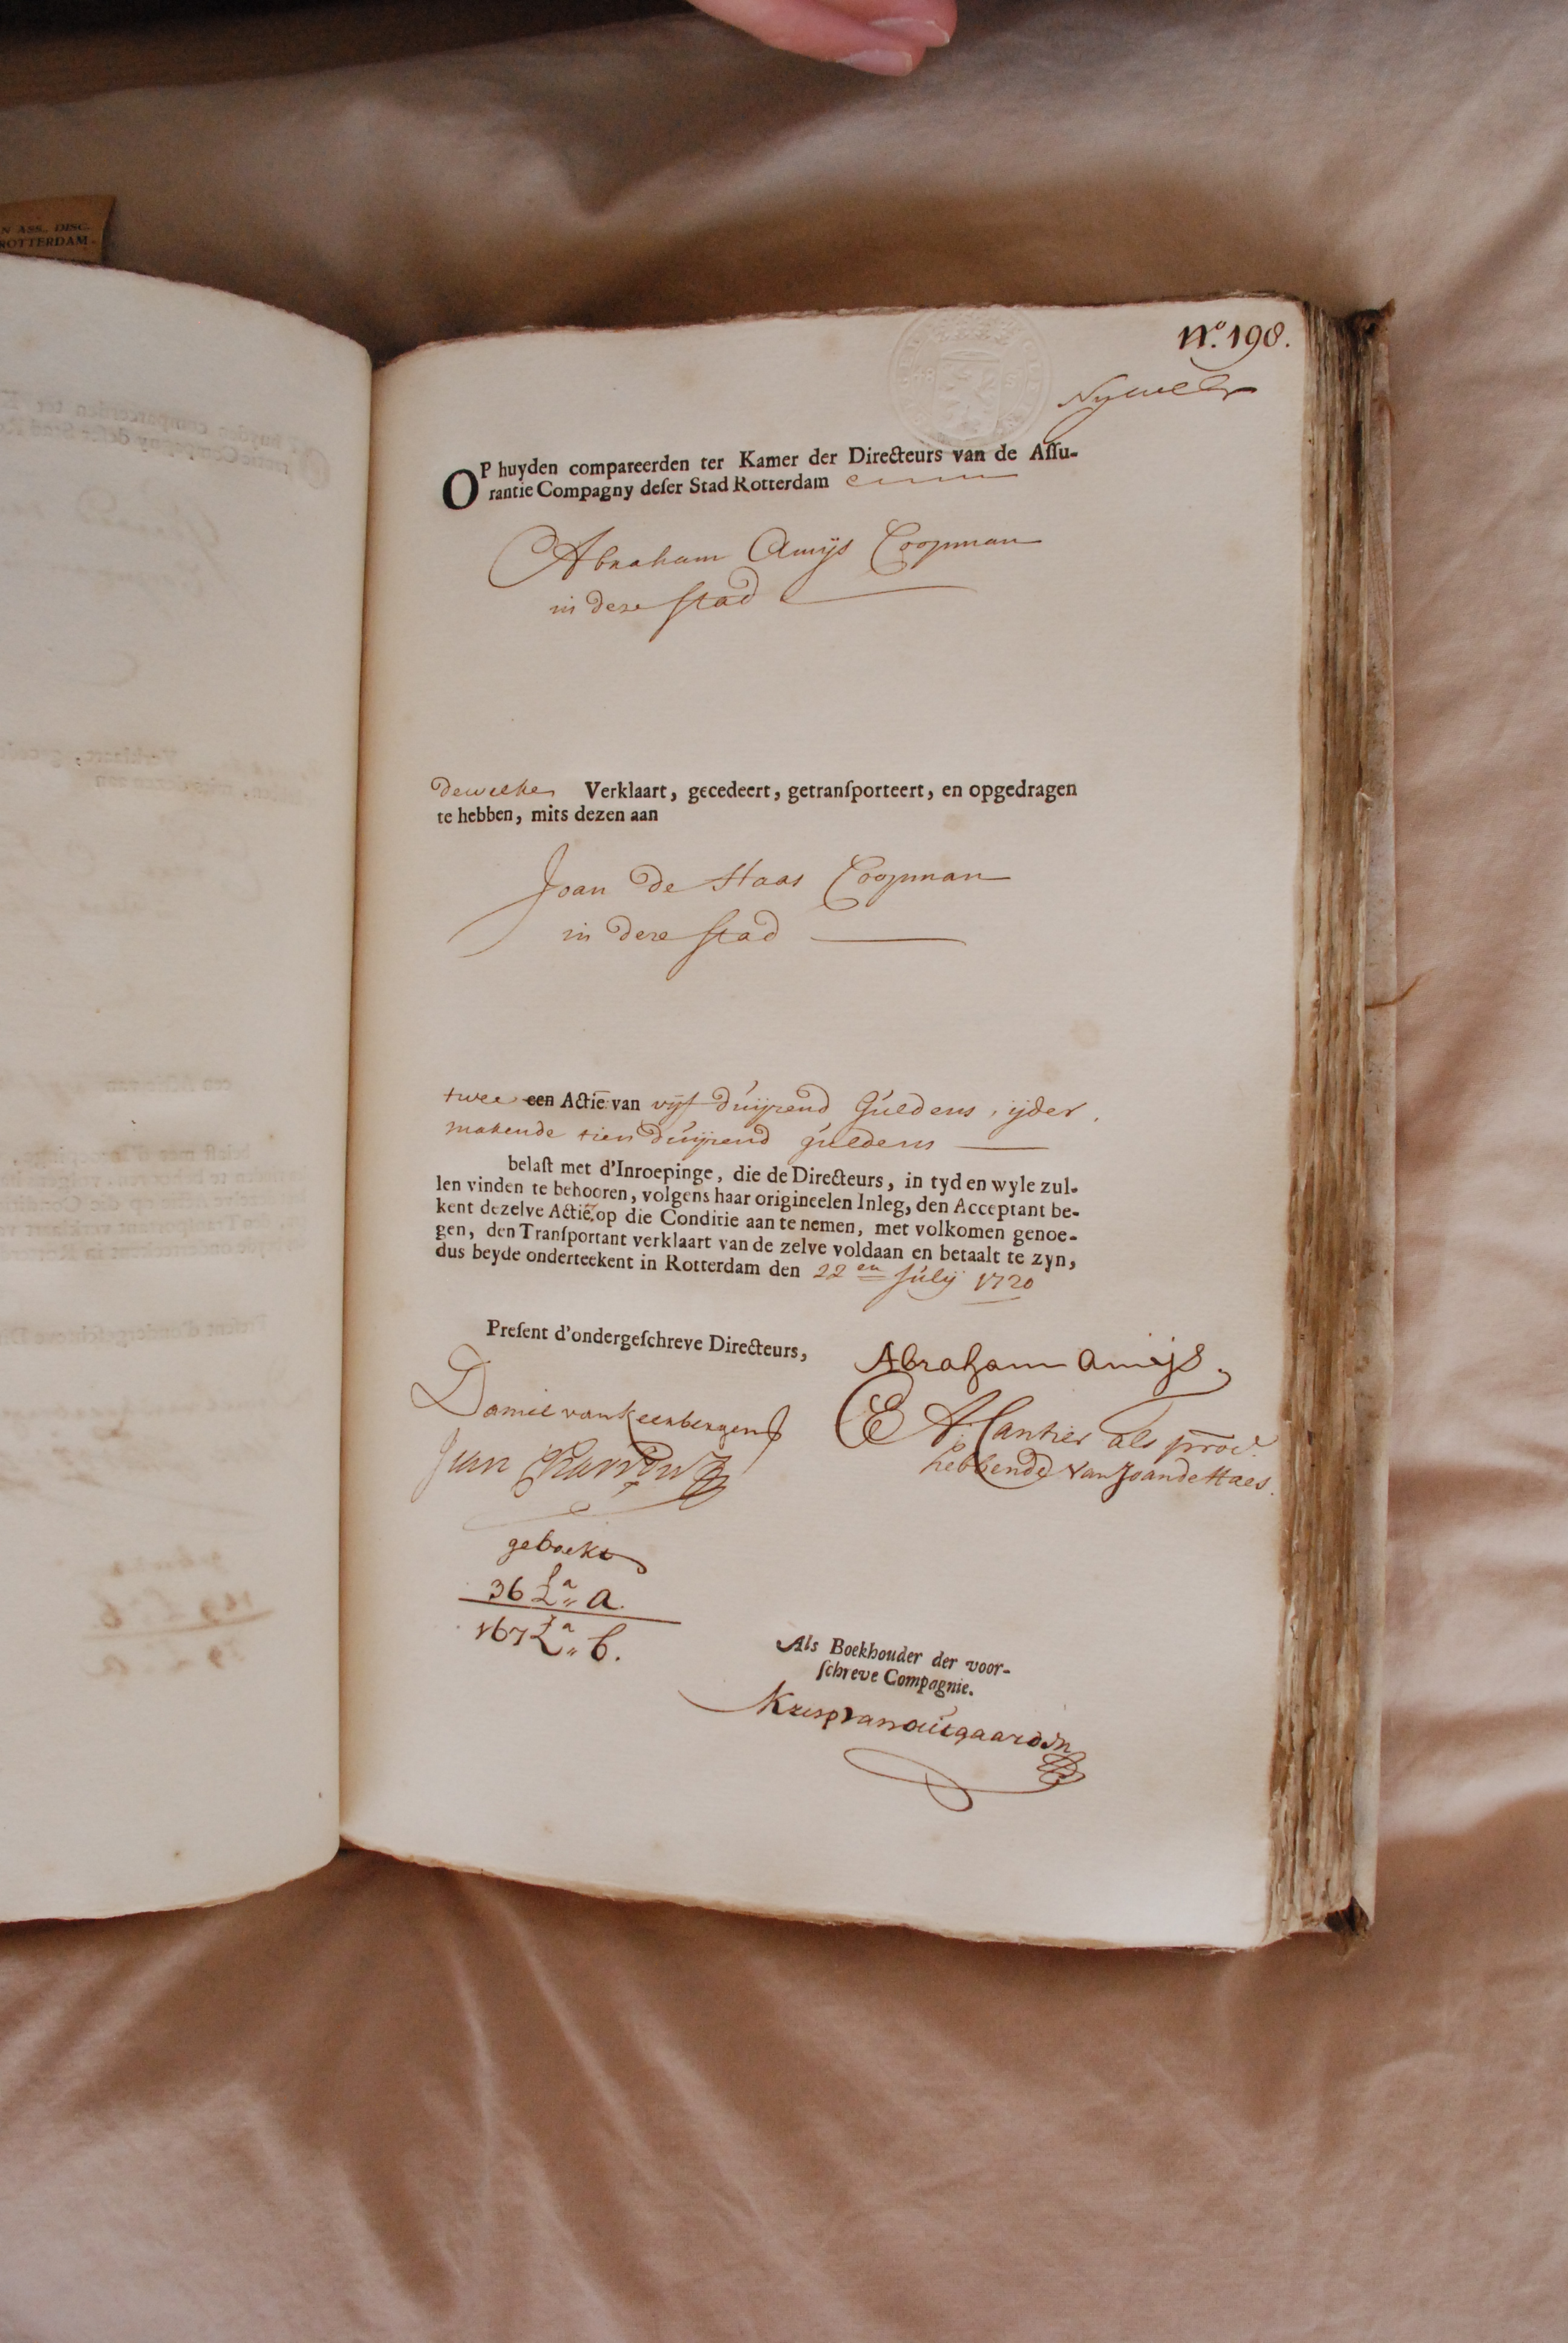 N ASS. DISC.
ROTTERDAM.
No. 198.
OP huyden compareerden ter Kamer der Directeurs van de Assu-
rantie Compagny deser Stad Rotterdam
Abraham Amijs Coopman
in dese stad
dewelke Verklaart, gecedeert, getransporteert, en opgedragen
te hebben, mits dezen aan
Joan de Haas Coopman
in dese stad
twee een Actie van vijf duijsend Guldens, ijder,
makende tien duijsend guldens
belast met d'Inroepinge, die de Directeurs, in tyd en wyle zul-
len vinden te behooren, volgens haar origineelen Inleg, den Acceptant be-
kent dezelve Actie, op die Conditie aan te nemen, met volkomen genoe-
gen, den Transportant verklaart van de zelve voldaan en betaalt te zyn,
dus beyde onderteekent in Rotterdam den 22en Julij 1720
Present d'ondergeschreve Directeurs,
Abraham Amijs.
Daniel van Keerbergen
als proc.
hebbende van Joan de Haes.
Jean
geboekt
36 La a.
167 La b.
Als Boekhouder der voor-
schreve Compagnie.